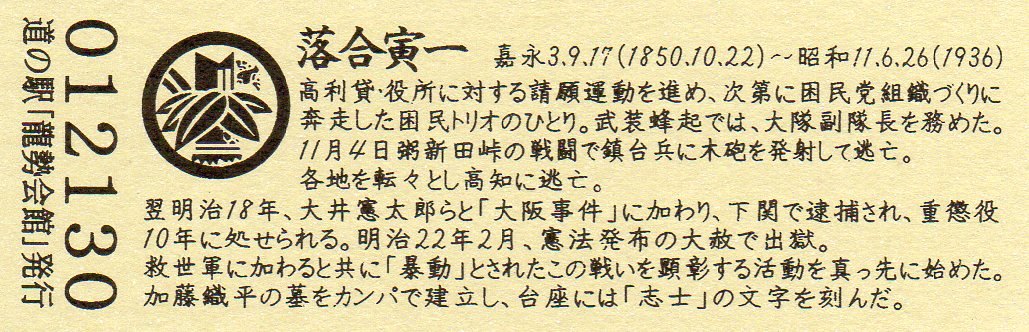 落合寅一 嘉永3.9.17(1850.10.22)～昭和11.6.26(1936)
高利貸・役所に対する請願運動を進め、次第に困民党組織づくりに
奔走した困民トリオのひとり。武装蜂起では、大隊副隊長を務めた。
11月4日粥新田峠の戦闘で鎮台兵に木砲を発射して逃亡。
各地を転々とし高知に逃亡。
翌明治18年、大井憲太郎らと「大阪事件」に加わり、下関で逮捕され、重懲役
10年に処せられる。明治22年2月、憲法発布の大赦で出獄。
救世軍に加わると共に「暴動」とされたこの戦いを顕彰する活動を真っ先に始めた。
加藤織平の墓をカンパで建立し、台座には「志士」の文字を刻んだ。
012130
道の駅「龍勢会館」発行